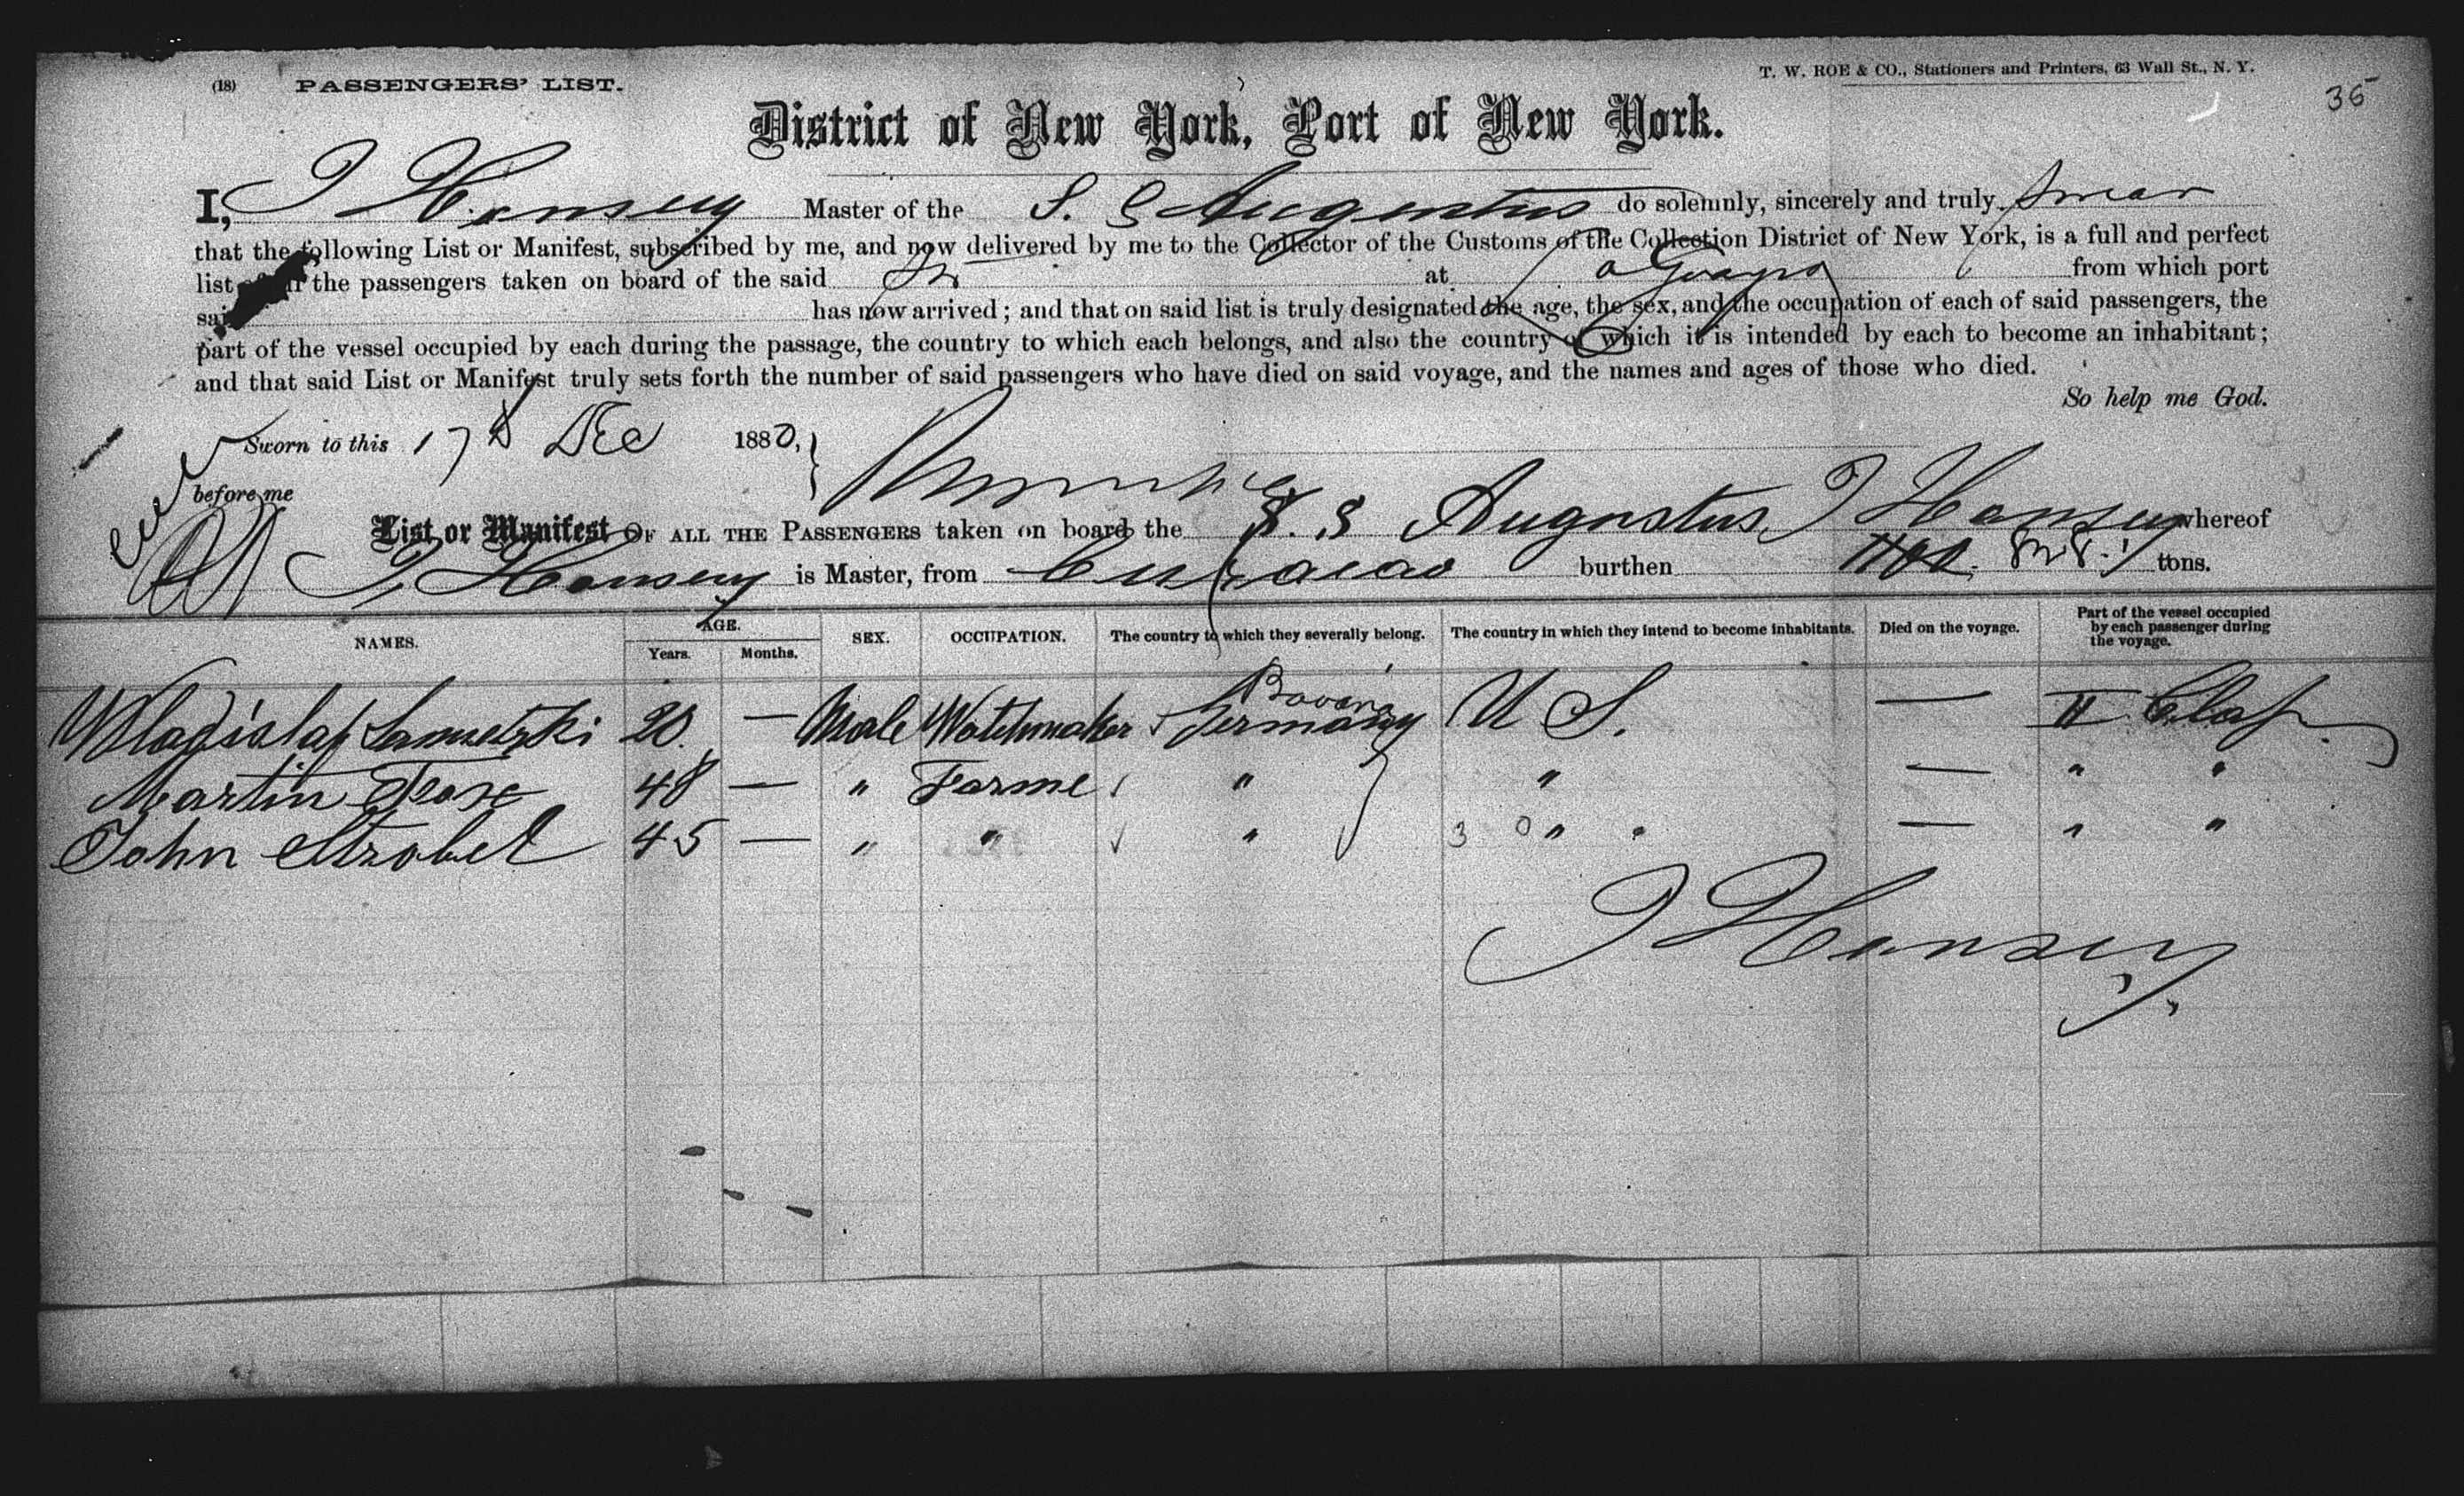 (18) PASSENGERS' LIST.
T. W. ROE & CO., Stationers and Printers, 63 Wall St., N. Y.
36
District of New York, Port of New York.
I, J Hansen Master of the S. S Augustus do solemnly, sincerely and truly swear
that the following List or Manifest, subscribed by me, and now delivered by me to the Collector of the Customs of the Collection District of New York, is a full and perfect
list the passengers taken on board of the said at from which port
has now arrived; and that on said list is truly designated the age, the sex, and the occupation of each of said passengers, the
part of the vessel occupied by each during the passage, the country to which each belongs, and also the country of which it is intended by each to become an inhabitant;
and that said List or Manifest truly sets forth the number of said passengers who have died on said voyage, and the names and ages of those who died.
So help me God.
Sworn to this 17th Dec 1880,
before me
List or Manifest OF ALL THE PASSENGERS taken on board the S. S Augustus J Hansen whereof
J Hansen is Master, from Curacao burthen tons.
NAMES. AGE. Years. Months. SEX. OCCUPATION. The country to which they severally belong. The country in which they intend to become inhabitants. Died on the voyage. Part of the vessel occupied by each passenger during the voyage.
Bavaria
Wladislaf 20 — Male Watchmaker Germany U S. — II Clas
Martin 48 — " Farme " " — " "
John Strobel 45 — " " " 3 0 " — " "
J Hansen